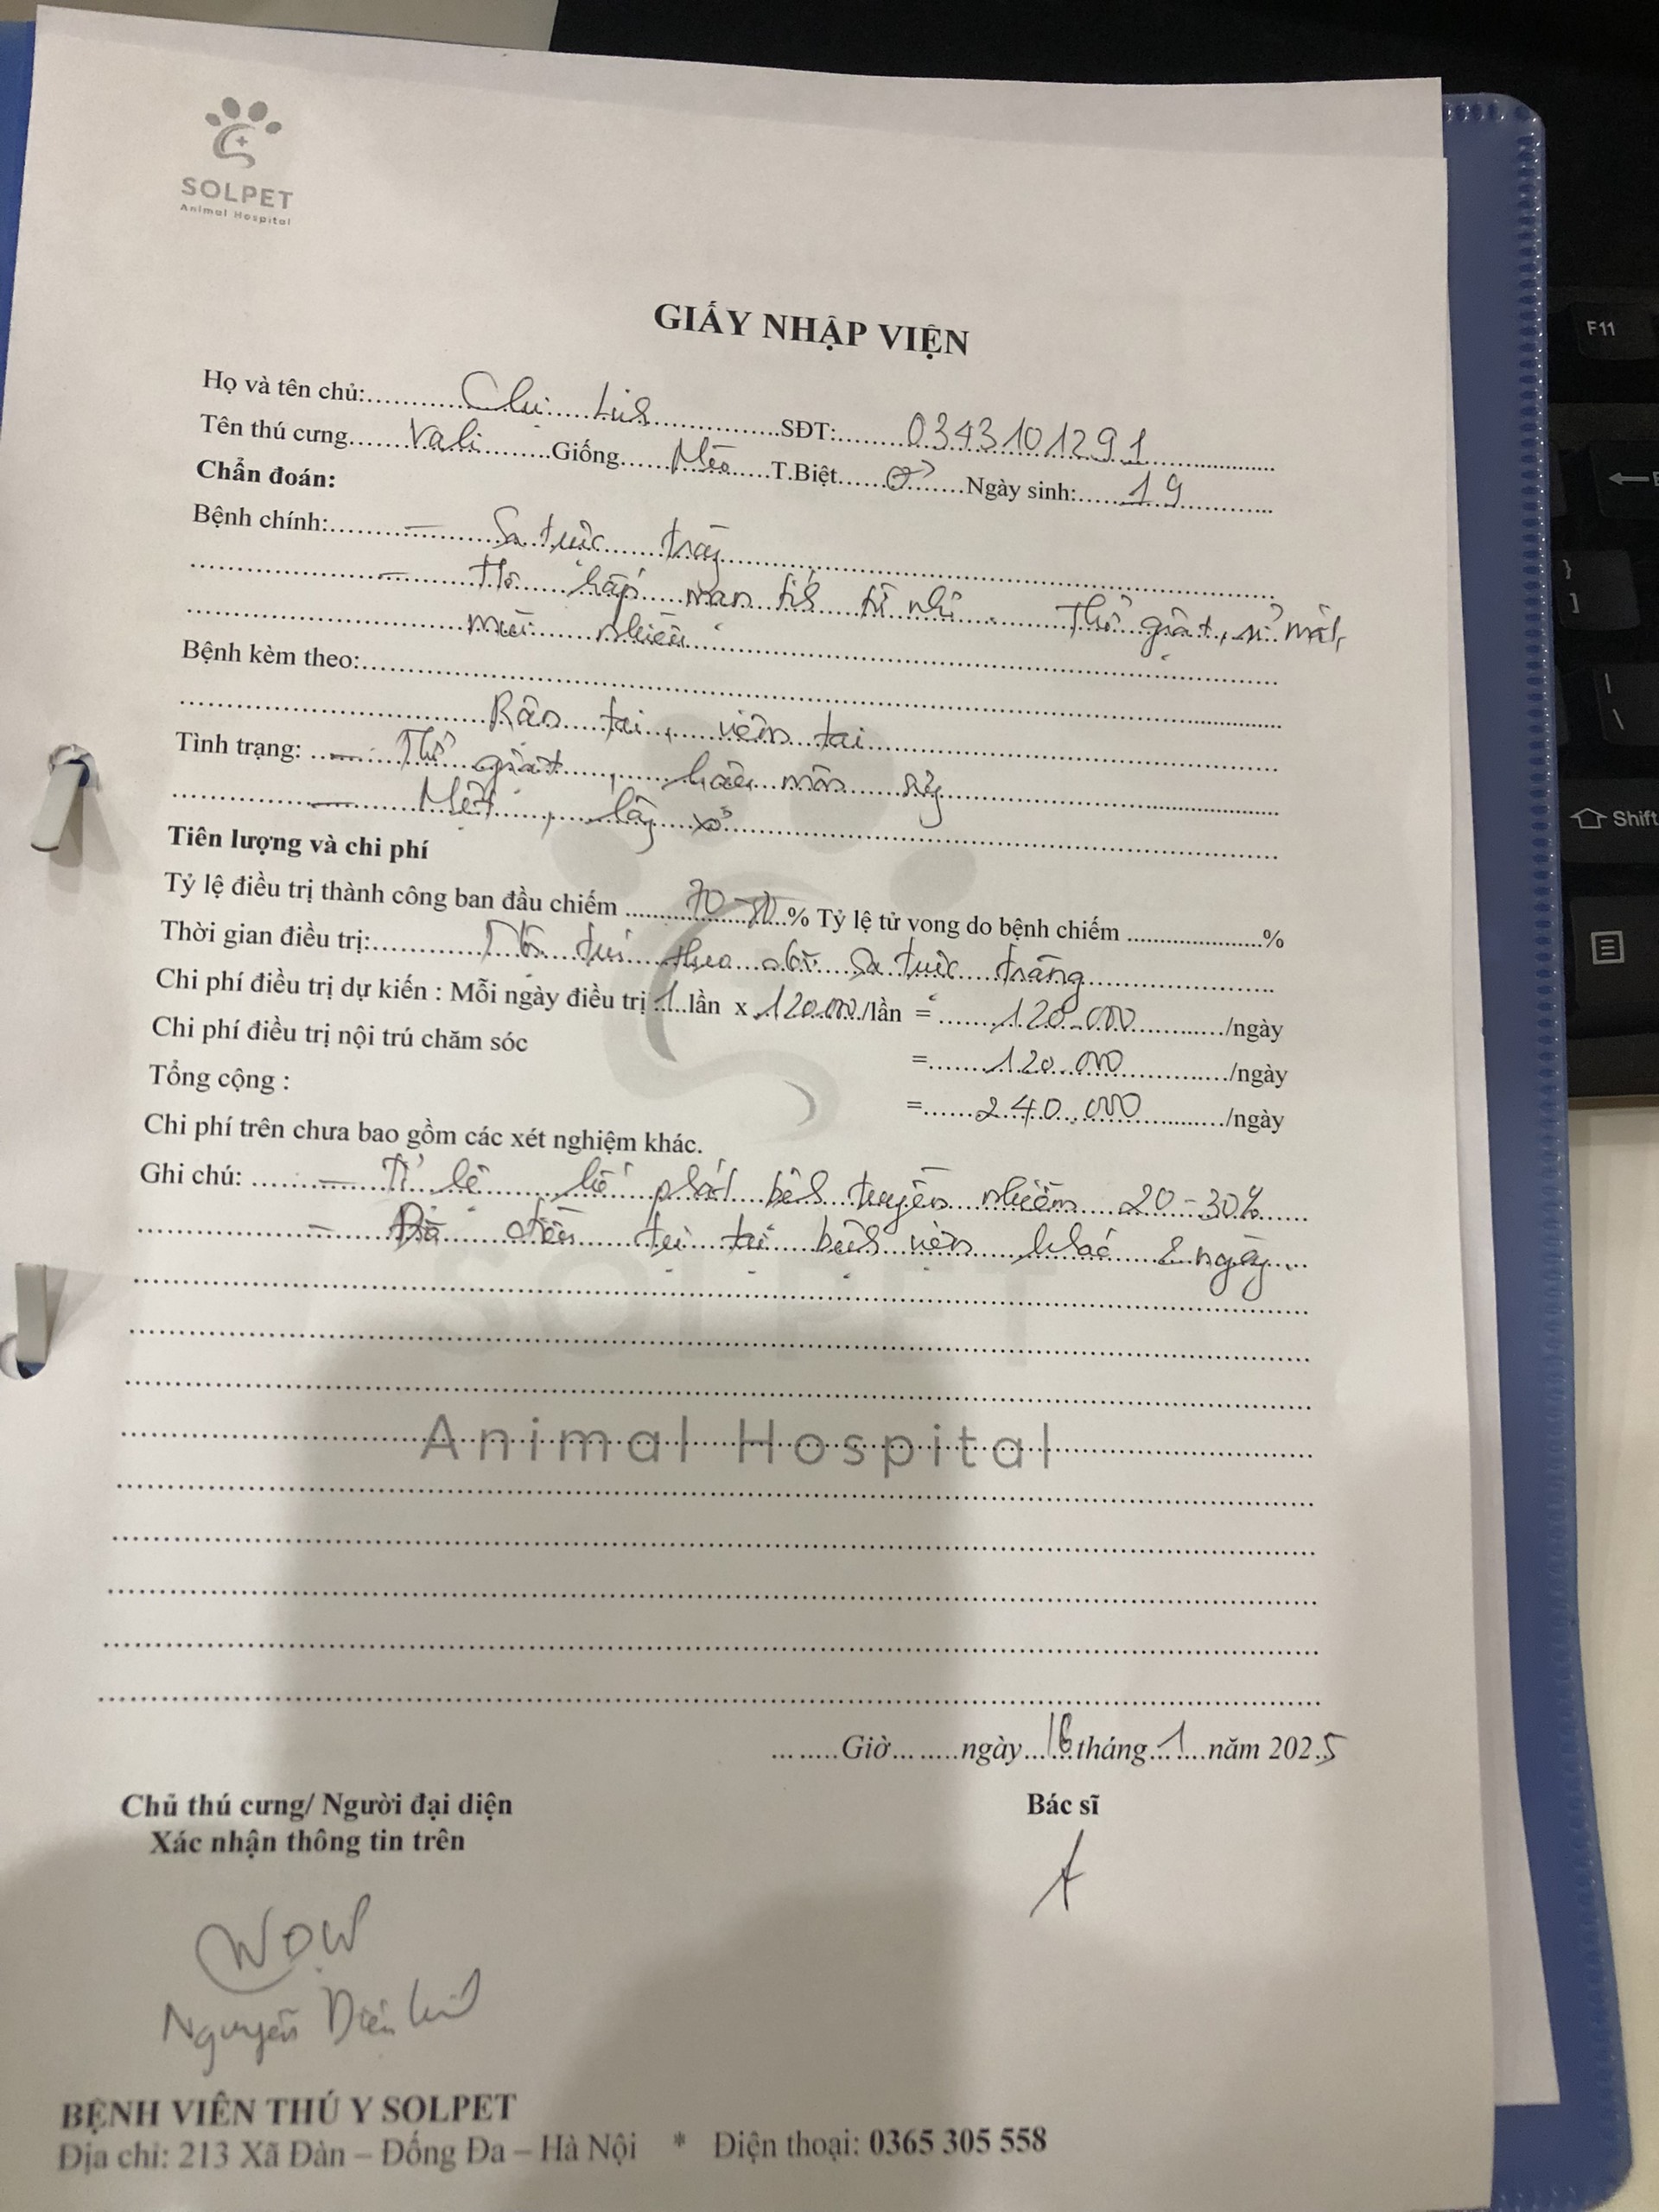 SOLPET
Animal Hospital
GIẤY NHẬP VIỆN
Họ và tên chủ: Chị SĐT: 0343101291
Tên thú cưng Vali Giống Mèo T.Biệt ♂ Ngày sinh: 19
Chẩn đoán:
Bệnh chính: - Sa trực tràng
- hấp mãn tính Thở giật, sỉ mắt,
mũi nhiều
Bệnh kèm theo:
Rận tai, viêm tai
Tình trạng: - Thở giật, hậu môn
- Mệt, lông xơ
Tiên lượng và chi phí
Tỷ lệ điều trị thành công ban đầu chiếm % Tỷ lệ tử vong do bệnh chiếm %
Thời gian điều trị: theo dõi sa trực tràng
Chi phí điều trị dự kiến : Mỗi ngày điều trị 1 lần x 120.000/lần = 120.000/ngày
Chi phí điều trị nội trú chăm sóc = 120.000/ngày
Tổng cộng : = 240.000/ngày
Chi phí trên chưa bao gồm các xét nghiệm khác.
Ghi chú: - Tỉ lệ phát bệnh truyền nhiễm 20-30%
- Đã điều trị tại bệnh viện khác 2 ngày
SOLPET
Animal Hospital
Giờ ngày 16 tháng 1 năm 2025
Chủ thú cưng/ Người đại diện Bác sĩ
Xác nhận thông tin trên
WOW
Nguyễn
BỆNH VIÊN THÚ Y SOLPET
Địa chỉ: 213 Xã Đàn – Đống Đa – Hà Nội * Điện thoại: 0365 305 558
F11
}
]
|
\
Shift